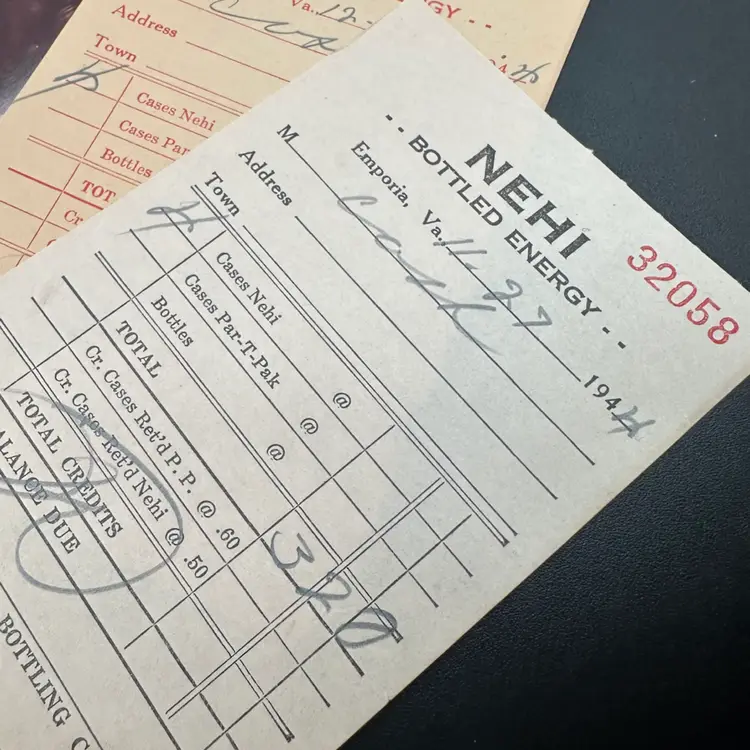 Va. 12- GY - -
Address
Town
4
Cases Nehi
Cases Par
Bottles
TOT
Cr.
NEHI
- - BOTTLED ENERGY - -
32058
Emporia, Va. 11-27 1944
M cash
Address
Town
4 Cases Nehi @
Cases Par-T-Pak @
Bottles @
TOTAL 320
Cr. Cases Ret'd P. P. @ .60
Cr. Cases Ret'd Nehi @ .50
TOTAL CREDITS
ALANCE DUE
BOTTLING C